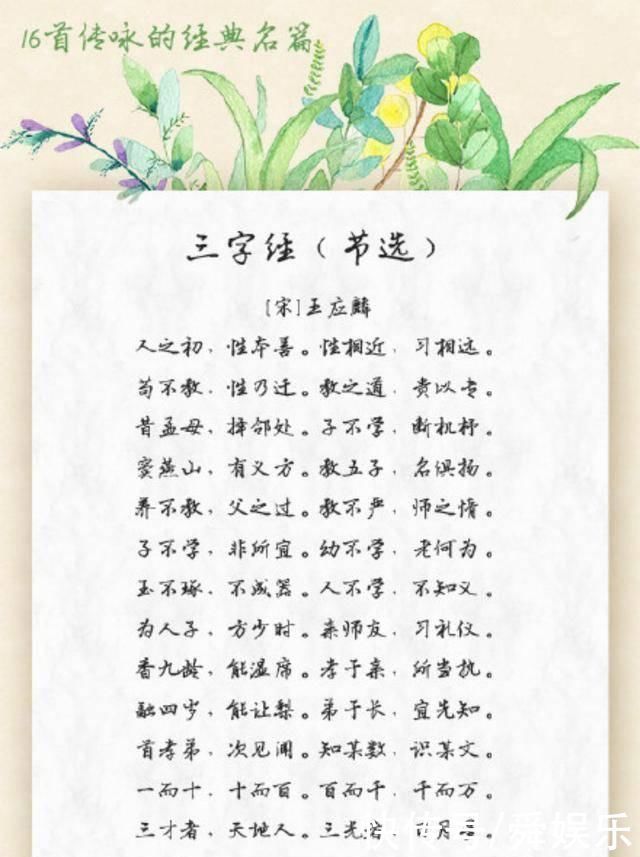 16首传咏的经典名篇
三字经（节选）
[宋]王应麟
人之初，性本善。性相近，习相远。
苟不教，性乃迁。教之道，贵以专。
昔孟母，择邻处。子不学，断机杼。
窦燕山，有义方。教五子，名俱扬。
养不教，父之过。教不严，师之惰。
子不学，非所宜。幼不学，老何为。
玉不琢，不成器。人不学，不知义。
为人子，方少时。亲师友，习礼仪。
香九龄，能温席。孝于亲，所当执。
融四岁，能让梨。弟于长，宜先知。
首孝弟，次见闻。知某数，识某文。
一而十，十而百。百而千，千而万。
三才者，天地人。三光
快传号/舜娱乐